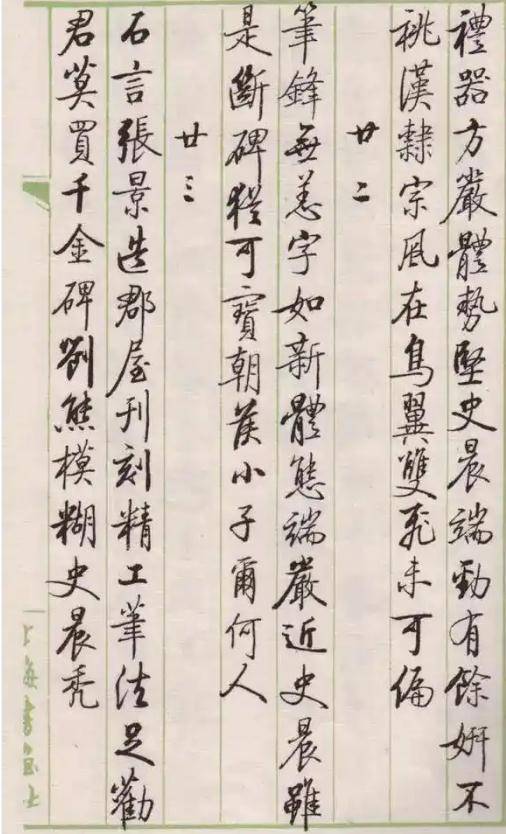 禮器方嚴體勢堅史晨端勁有餘妍不
祧漢隸宗風在鳥翼雙飛未可偏
廿二
筆鋒無恙字如新體態端嚴近史晨雖
是斷碑猶可寶朝侯小子爾何人
廿三
石言張景造郡屋刊刻精工筆法足勸
君莫買千金碑劉熊模糊史晨禿
上海書画